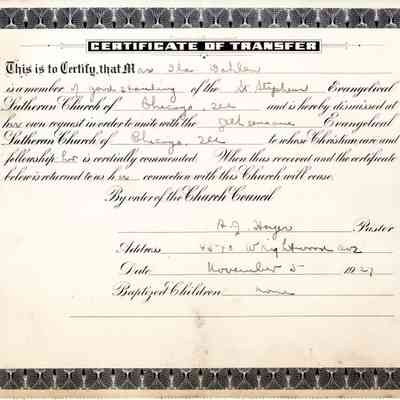 CERTIFICATE OF TRANSFER
This is to Certify, that Mrs Ida Dahlen
is a member of good standing of the St Stephens Evangelical
Lutheran Church of Chicago, Ill and is hereby dismissed at
her own request in order to unite with the Gethsemane Evangelical
Lutheran Church of Chicago, Ill to whose Christian care and
fellowship her is cordially commended. When thus received and the certificate
below is returned to us her connection with this Church will cease.
By order of the Church Council
A. J. Pastor
Address Wrightwood Ave
Date November 5 1927
Baptized Children none